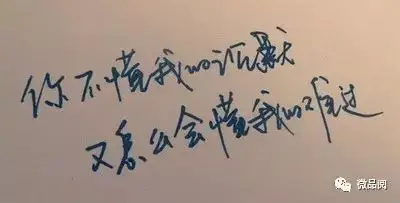 你不懂我的沉默
又怎么会懂我的难过
微品阅